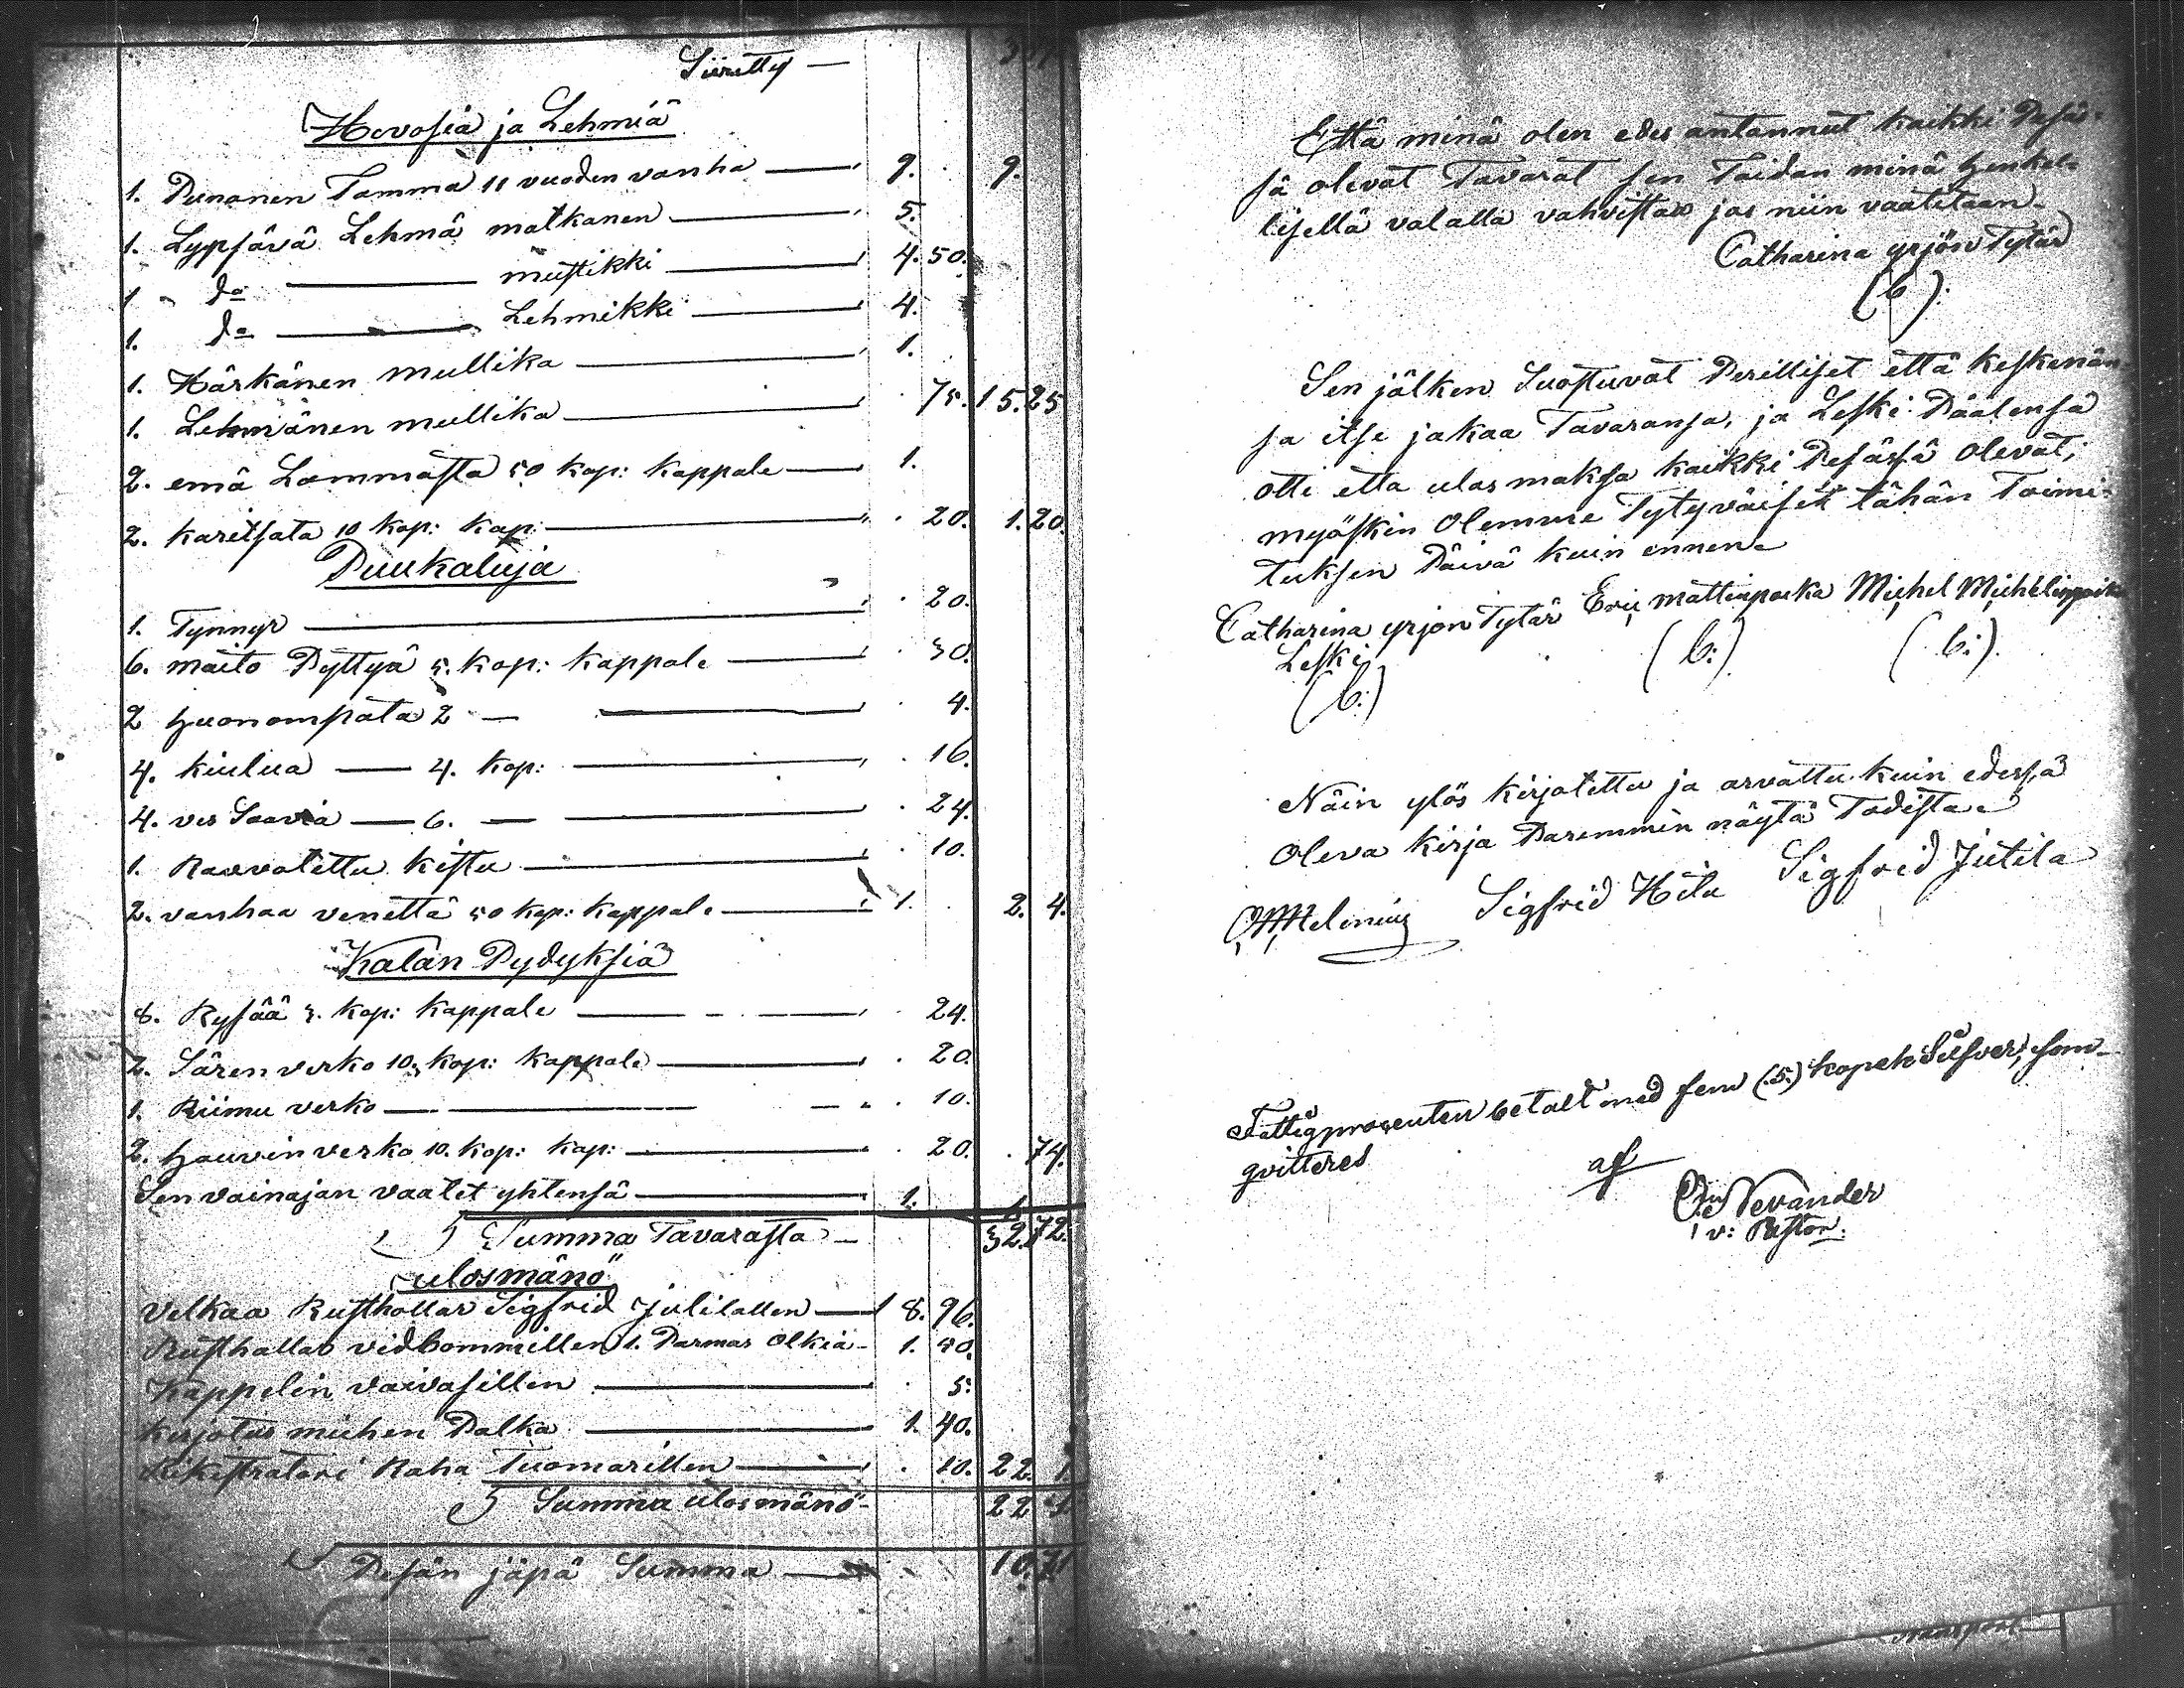 Siiretty —
Hevosia ja Lehmiä
1. Punanen Tamma 11 vuoden vanha — 9. 9.
1. Lypsävä Lehmä matkanen — 5.
1 " do — mustikki — 4. 50.
1. do — Lehmikki — 4.
1. Härkänen mullika — 1.
1. Lehmänen mullika — 75. 15. 25
2. emä Lammasta 50 kop: kappale — 1.
2. karitsata 10 kop: kap: — 20. 1. 20.
Puukaluja
1. Tynnyr — 20.
6. maito Pyttyä 5. kop: kappale — 30.
2 huonompata 2 — — 4.
4. kiulua — 4. kop: — 16.
4. ves Saavia — 6. — — 24.
1. Rauvotettu kistu — 10.
2. vanhaa venettä 50 kop: kappale — 1. 2. 4.
Kalan Pydyksiä
8. Rysää 3. kop: kappale — 24.
2. Sären verko 10. kop: kappale — 20.
1. Riimu verko — 10.
2. hauvin verko 10. kop: kap: — 20. 74.
Sen vainajan vaatet yhtensä — 1. 1.
Summa Tavarasta — 32. 72.
ulosmänö
Velkaa Rusthollar Sigfrid Jutilallen — 18. 96.
Rusthollar vidbommillen 1. Parmas olkia — 1. 50.
Kappelin vaivasillen — 5.
Kirjotus miehen Palka — 1. 40.
Rikistratori Raha Tuomarillen — 10. 22. 1
Summa ulosmänö — 22. 1.
Pesän jäpä Summa — 10. 71
Että minä olen edes antannut kaikki Pesäs-
sä olevat Tavarat sen Taidan minä henkel-
lisellä valalla vahvistaa jos niin vaatitaan.
Catharina yrjön Tytär
(b).
Sen jälken Suostuvat Perilliset että keskenän
sa itse jakaa Tavaransa, ja Leski Päälensä
otti etta ulos maksa kaikki Pesässä olevat;
myöskin Olemme Tytyväiset tähän Toimi-
tuksen Päivä kuin ennen.
Catharina yrjön Tytär Eric mattinpoika Michel Michelinpoika
Leski (b:) (b:).
(b:)
Näin ylös kirjotettu ja arvattu kuin edessä
Oleva kirja Paremmin näytä Todistaa
Melenius Sigfrid Hilu Sigfrid Jutila
Fattigprosenten betalt med fem (5.) kopek Silfver, som
qvitteres
af
Nevander
v: Pastor.